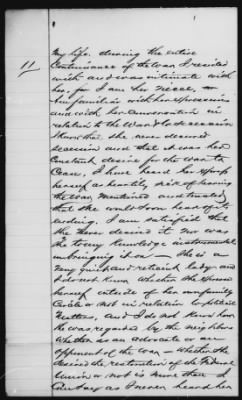 11
my life. during the entire
Continuance of the war, I resided
with and was intimate with
her, for I am her neice, —
Am familiar with her expressions
and with her conversation in
relation to the war & to secession
I know that she never desired
secession and that it was her
Constant desire for the war to
Cease, I have heard her express
herself as heartily sick of hearing
the war mentioned and trusted
that she would soon hear of its
ending. I am satisfied that
she never desired it nor was
she to my knowledge instrumental
in bringing it on — She is a
very quiet and reticent lady and
I do not know whether she expressed
herself outside of her own family
Circle or not in relation to political
Matters, and I do not know how
he was regarded by the neighbors
whether as an advocate or an
opponent of the war — whether she
desired the restoration of the Federal
Union or not is more than I
Can say as I never heard her